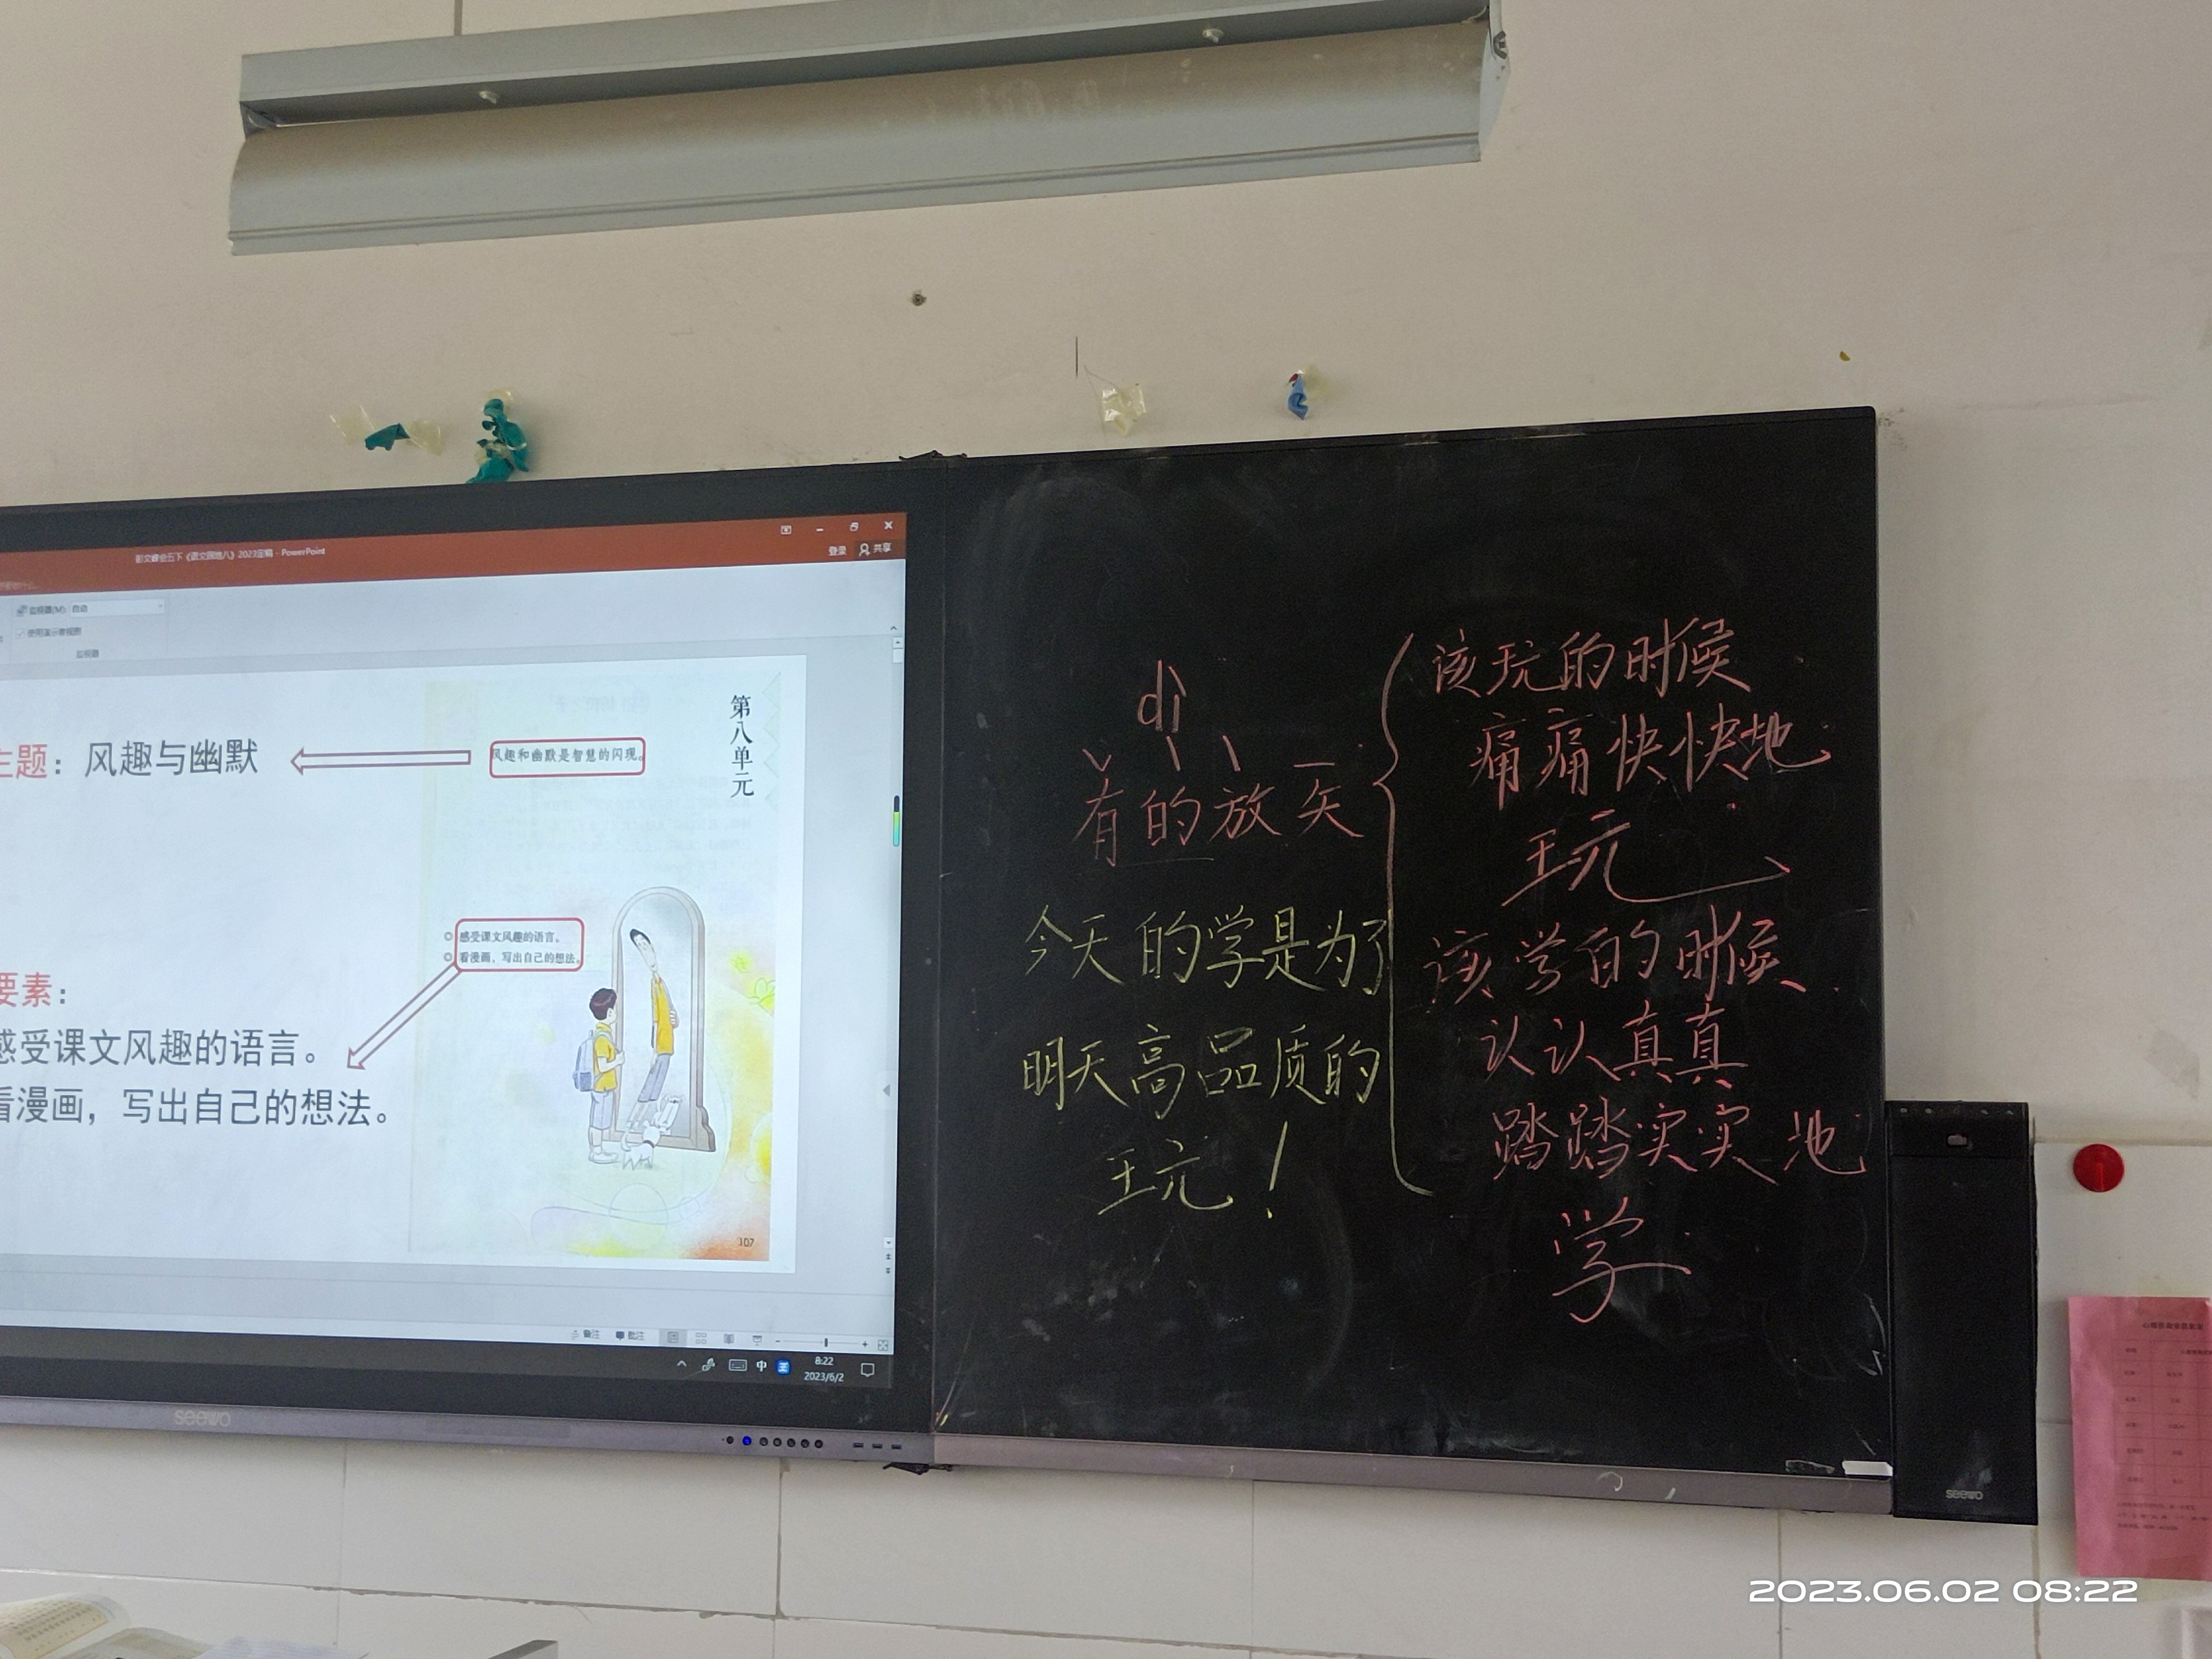 彭文峰会五下《语文园地八》2023定稿 - PowerPoint
登录 共享
监视器(M): 自动
使用演示者视图
监视器
主题：风趣与幽默
风趣和幽默是智慧的闪现。
第八单元
感受课文风趣的语言。
看漫画，写出自己的想法。
要素：
感受课文风趣的语言。
看漫画，写出自己的想法。
107
备注 批注
中
8:22
2023/6/2
seewo
dì
有的放矢
今天的学是为了
明天高品质的
玩！
该玩的时候
痛痛快快地
玩
该学的时候
认认真真
踏踏实实地
学
seewo
2023.06.02 08:22